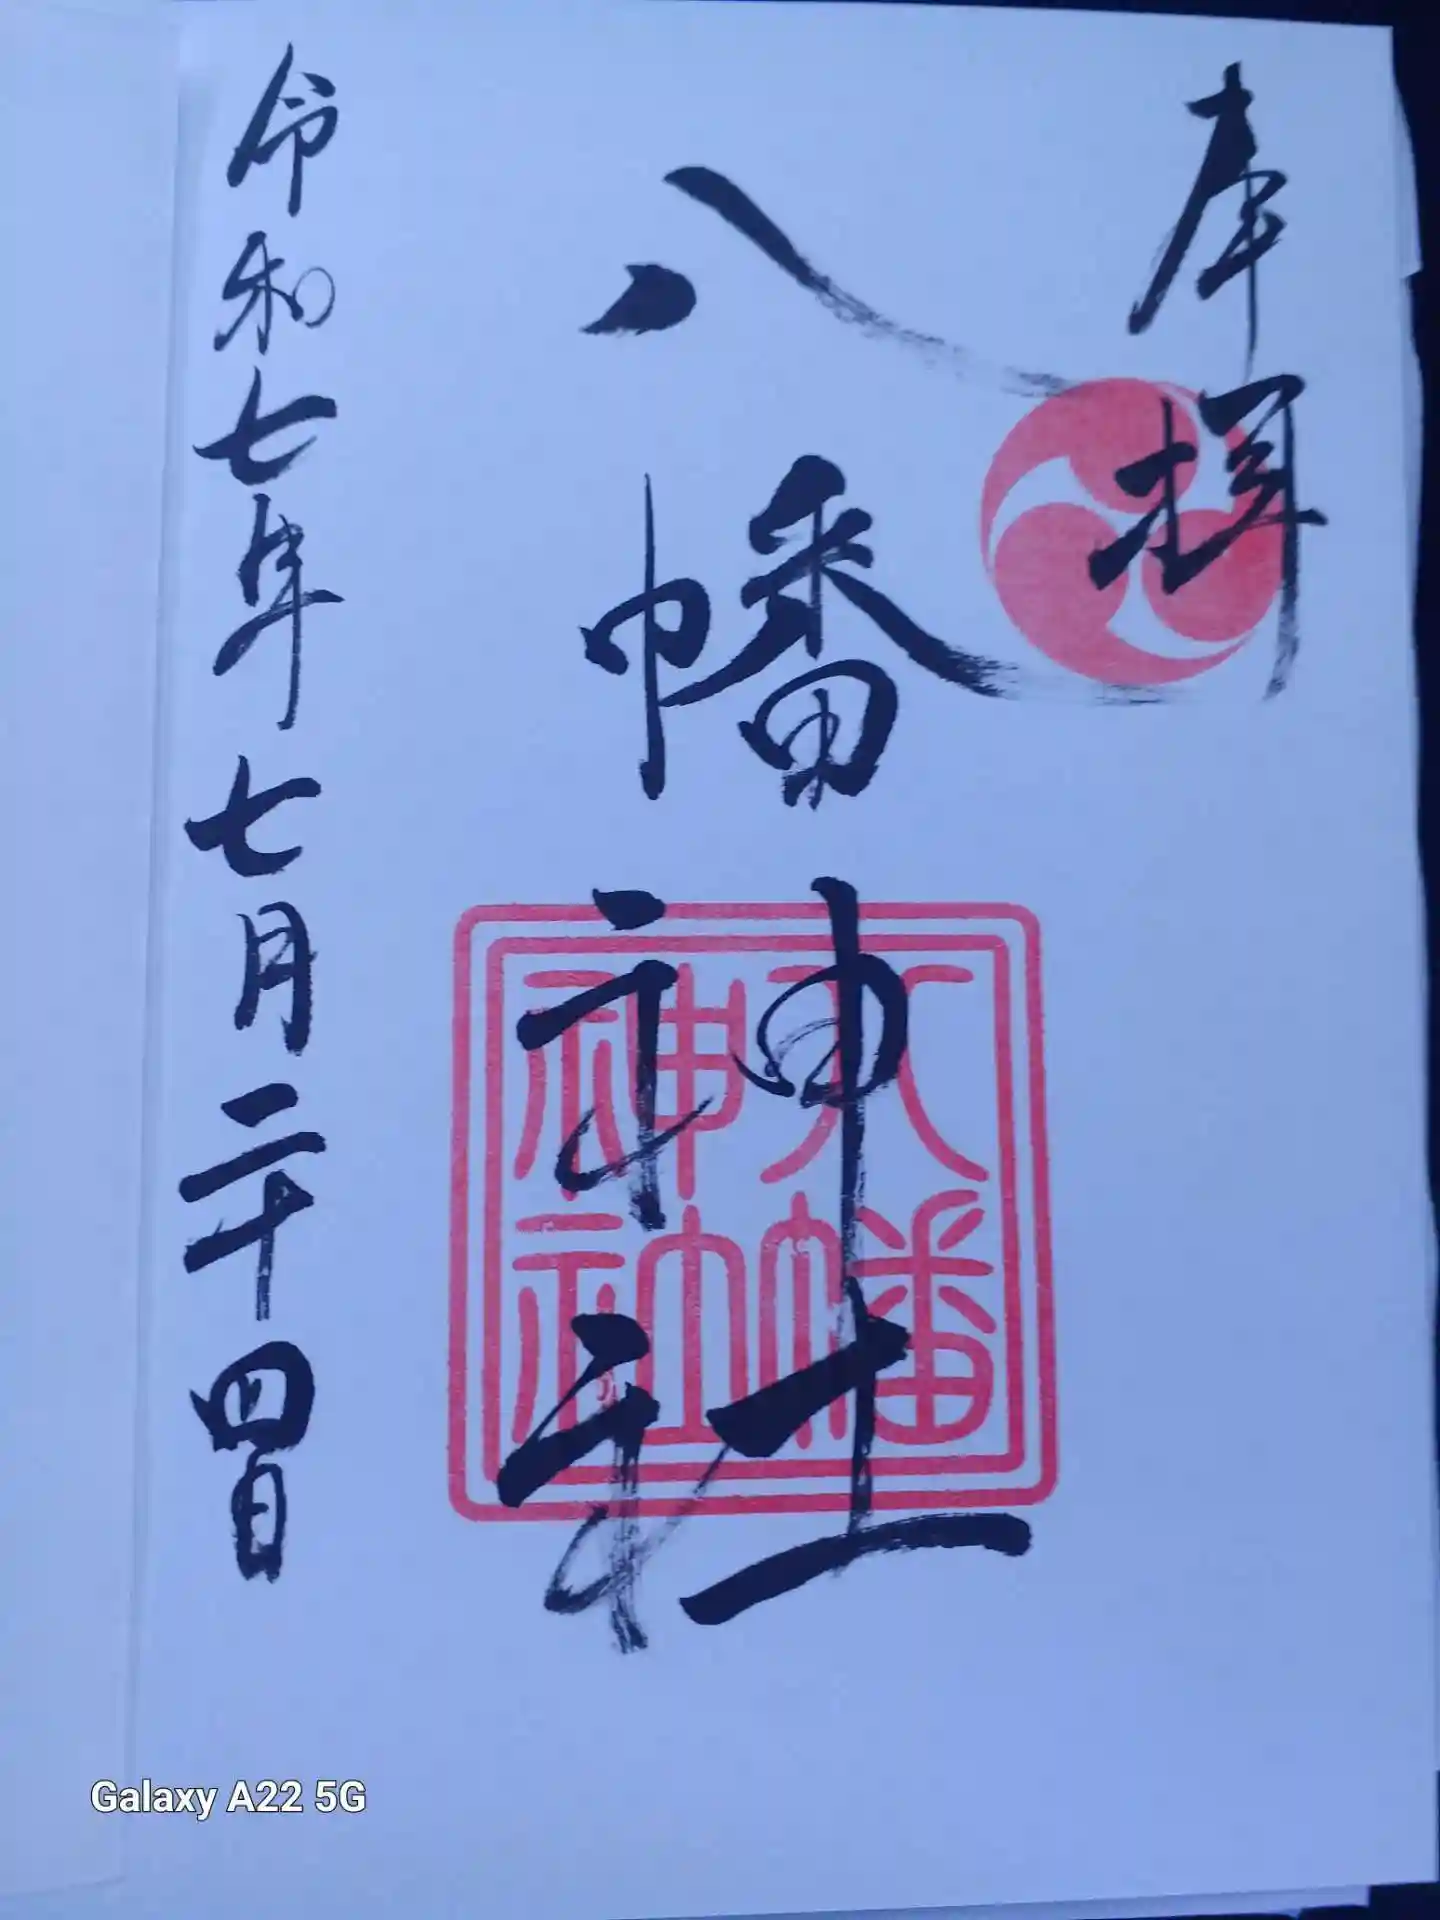 奉拝
八幡神社
八幡神社
令和七年七月二十四日
Galaxy A22 5G